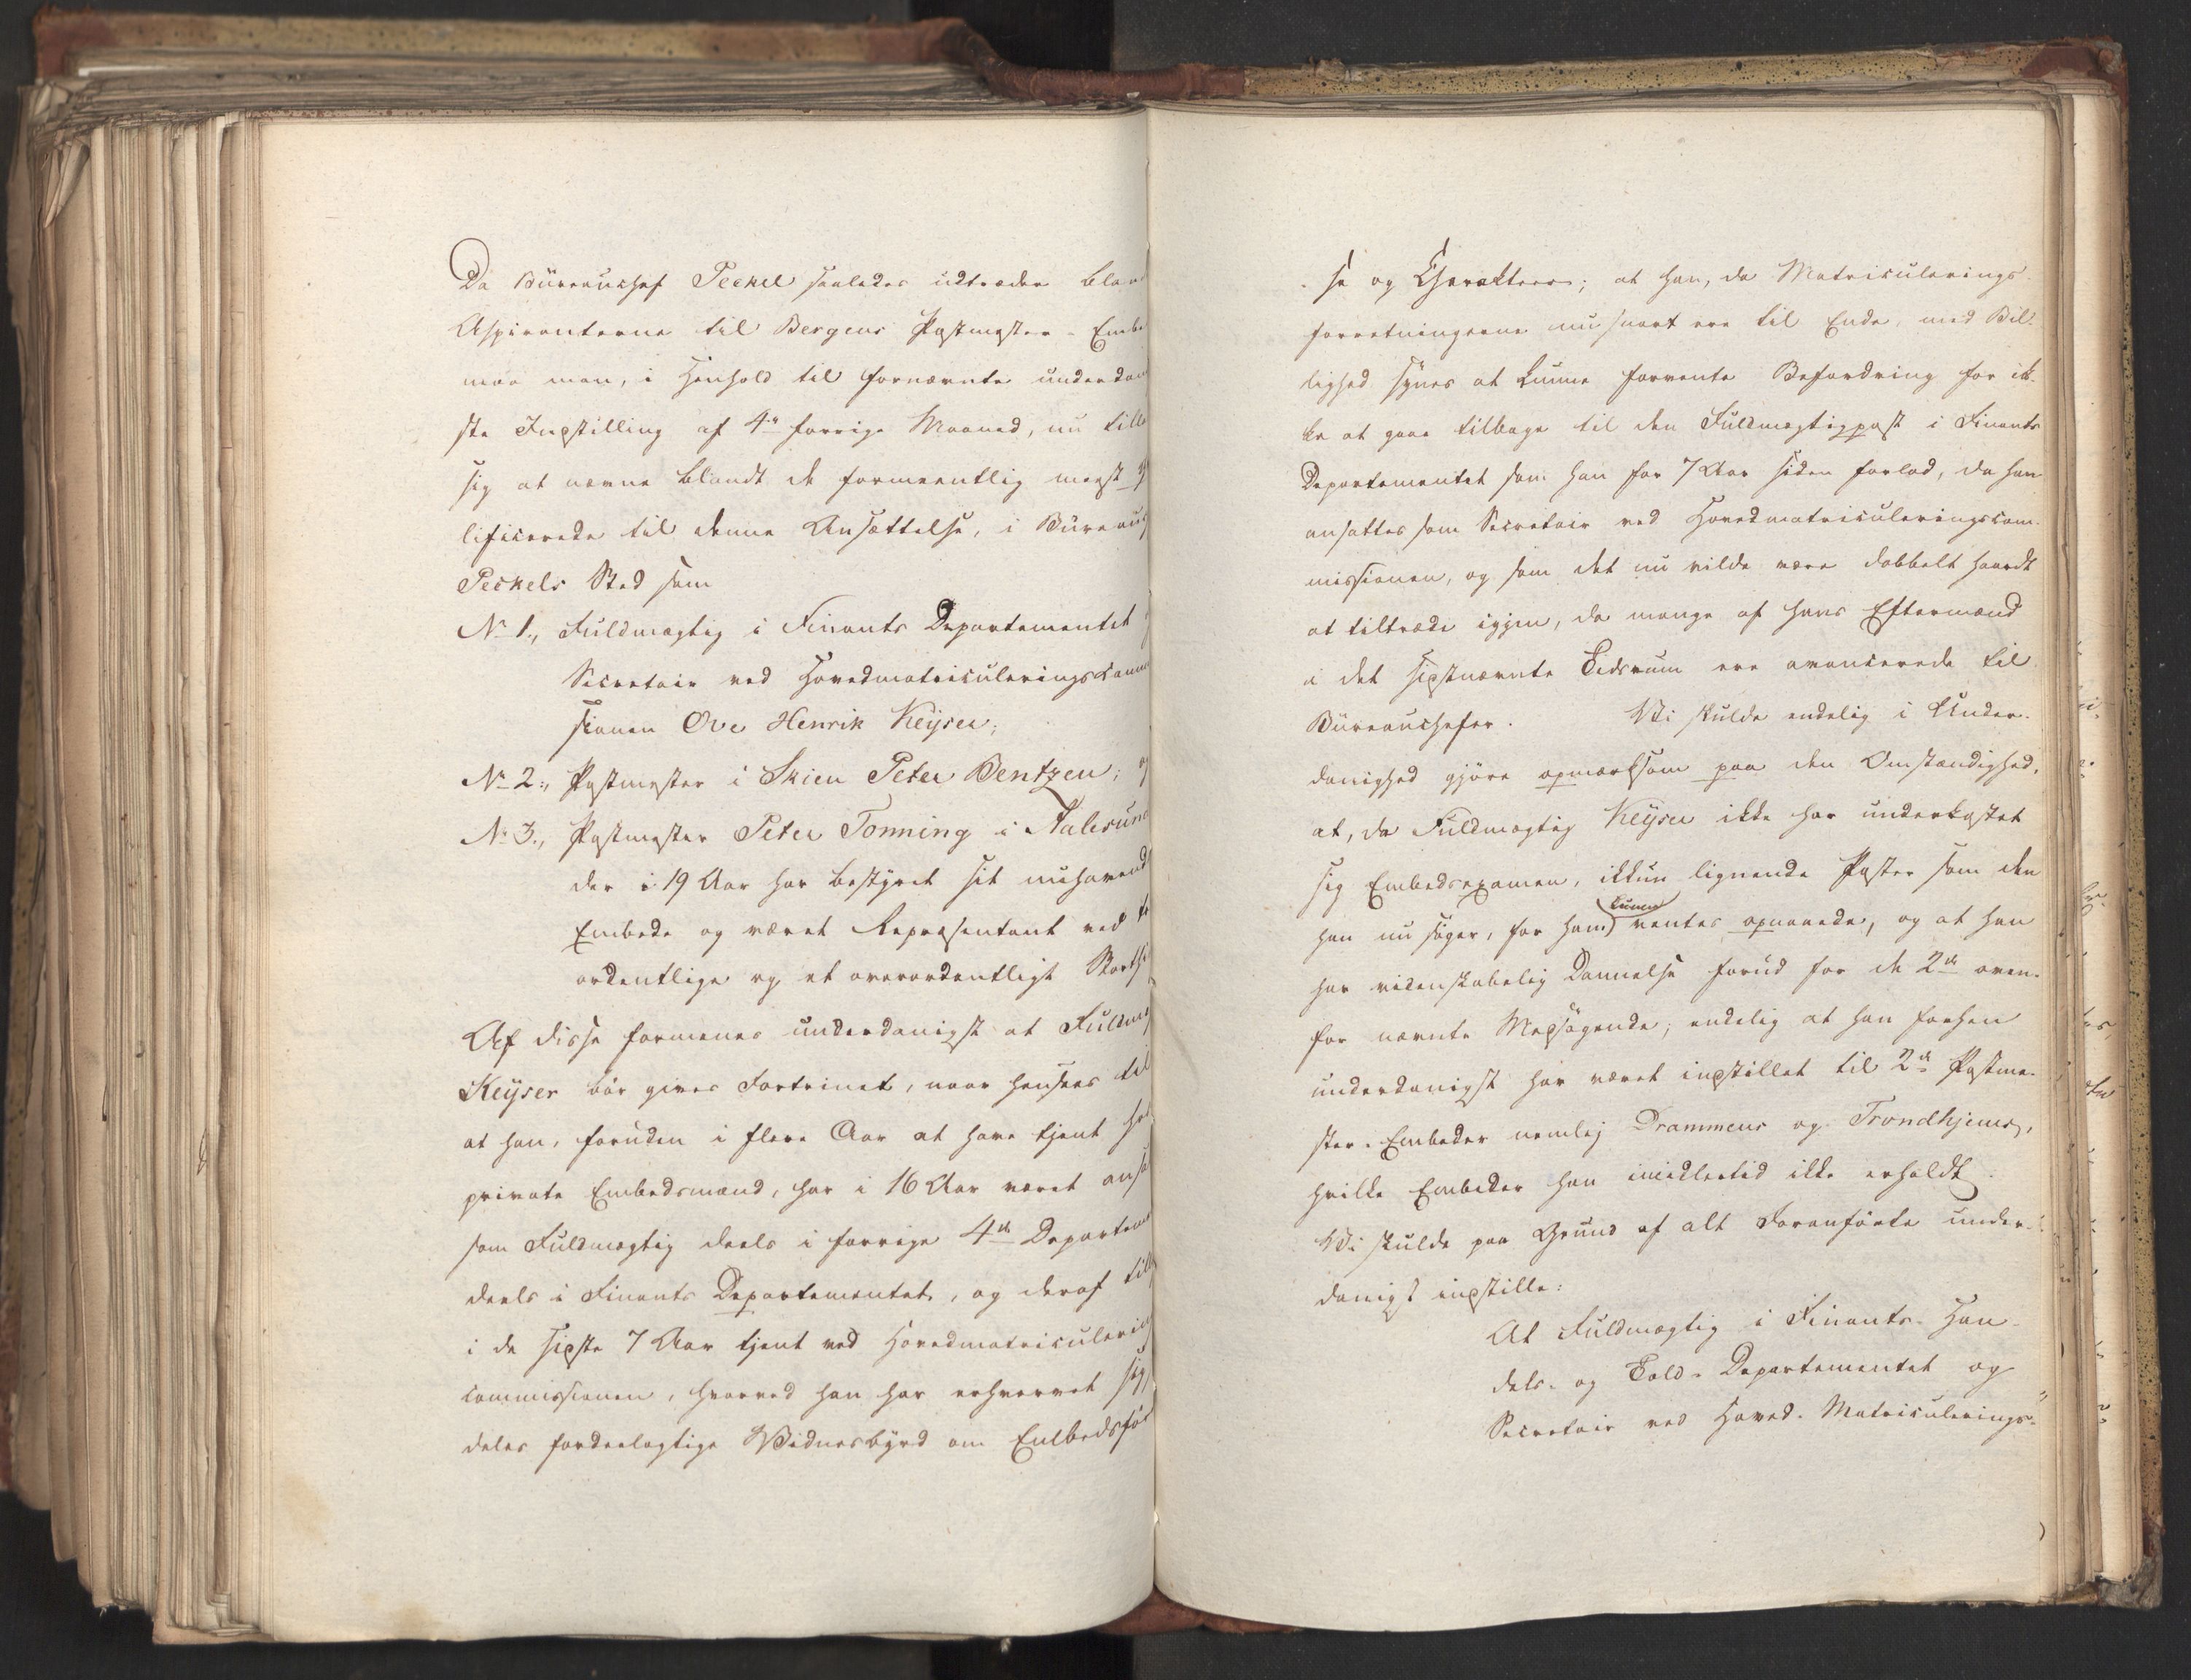 Da Büreauchef Peckel saaledes udtræder bland
Aspiranterne til Bergens Postmester-Embe
maa man, i Henhold til fornævnte underdan
ste Indstilling af 4de forrige Maaned, nu tilla
sig at nævne blandt de formeentlig meest q
lificerede til denne Ansættelse, i Büreauch
Peckels Sted som
No 1., Fuldmægtig i Finants Departementet
Secretair ved Hovedmatriculeringscomm
sionen Ove Henrik Keÿser;
No 2., Postmester i Skien Peter Bentzen; og
No 3., Postmester Peter Tonning i Aalesund
der i 19 Aar har bestyret sit nuhavend
Embede og været Repræsentant ved
ordentlige og et overordentligt Storthi
Af disse formenes underdanigst at Fuldmæ
Keÿser bör gives Fortrinet, naar hensees til
at han, foruden i flere Aar at have tjent hos
private Embedsmænd, har i 16 Aar været ansa
som Fuldmægtig deels i forrige 4de Departem
deels i Finants Departementet, og deraf till
i de sidste 7 Aar tjent ved Hovedmatriculering
commissionen, hvorved han har erhvervet sig
deles fordeelagtige Vidnesbyrd om Embedsför
-se og Charakteer; at han, da Matriculerings-
forretningerne nu snart ere til Ende, med Bil-
lighed synes at kunne forvente Befordring for ik-
ke at gaae tilbage til den Fuldmægtigpost i Finants
Departementet som han for 7 Aar siden forlod, da han
ansattes som Secretair ved Hovedmatriculeringscom-
missionen, og som det nu vilde være dobbelt haardt
at tiltræde igjen, da mange af hans Eftermænd
i det sidstnævnte Tidsrum ere avancerede til
Büreauchefer. Vi skulde endelig i Under-
danighed gjöre opmærksom paa den Omstændighed,
at, da Fuldmægtig Keÿser ikke har underkastet
sig Embedsexamen, ikkun lignende Poster som den
han nu söger, for ham kunne ventes opnaaede, og at han
har videnskabelig Dannelse forud for de 2de oven-
for nævnte Medsögende; endelig at han forhen
underdanigst har været indstillet til 2de Postme-
ster-Embeder nemlig Drammens og Trondhjems,
hvilke Embeder han imidlertid ikke erholdt.
Vi skulde paa Grund af alt Foranförte under-
danigst indstille:
At Fuldmægtig i Finants- Han-
dels- og Told-Departementet og
Secretair ved Hoved-Matriculerings-